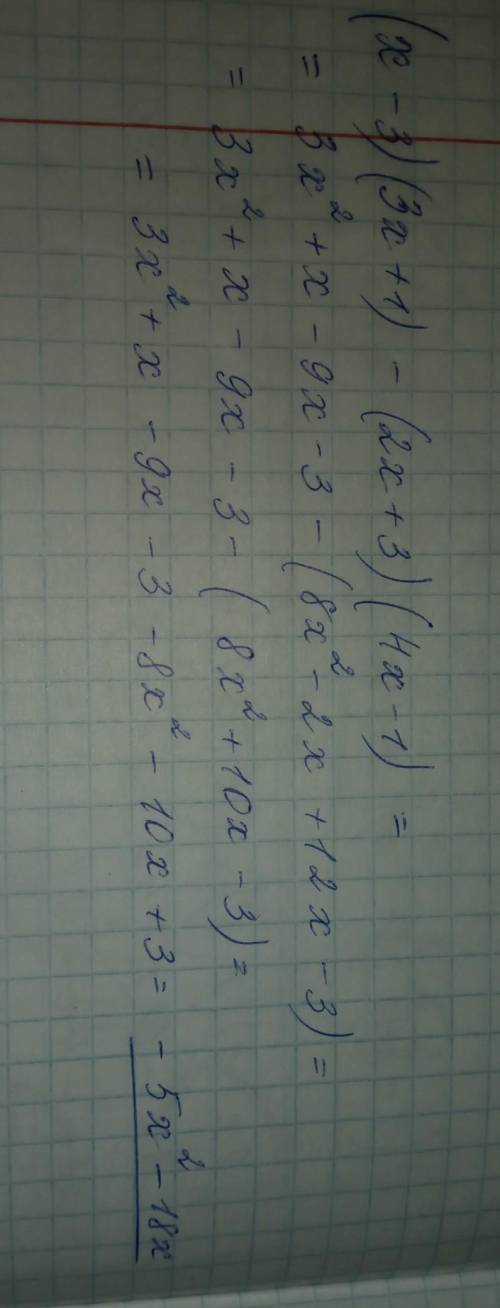 (x - 3)(3x + 1) - (2x + 3)(4x - 1) =
= 3x² + x - 9x - 3 - (8x² - 2x + 12x - 3) =
= 3x² + x - 9x - 3 - (8x² + 10x - 3) =
= 3x² + x - 9x - 3 - 8x² - 10x + 3 = - 5x² - 18x